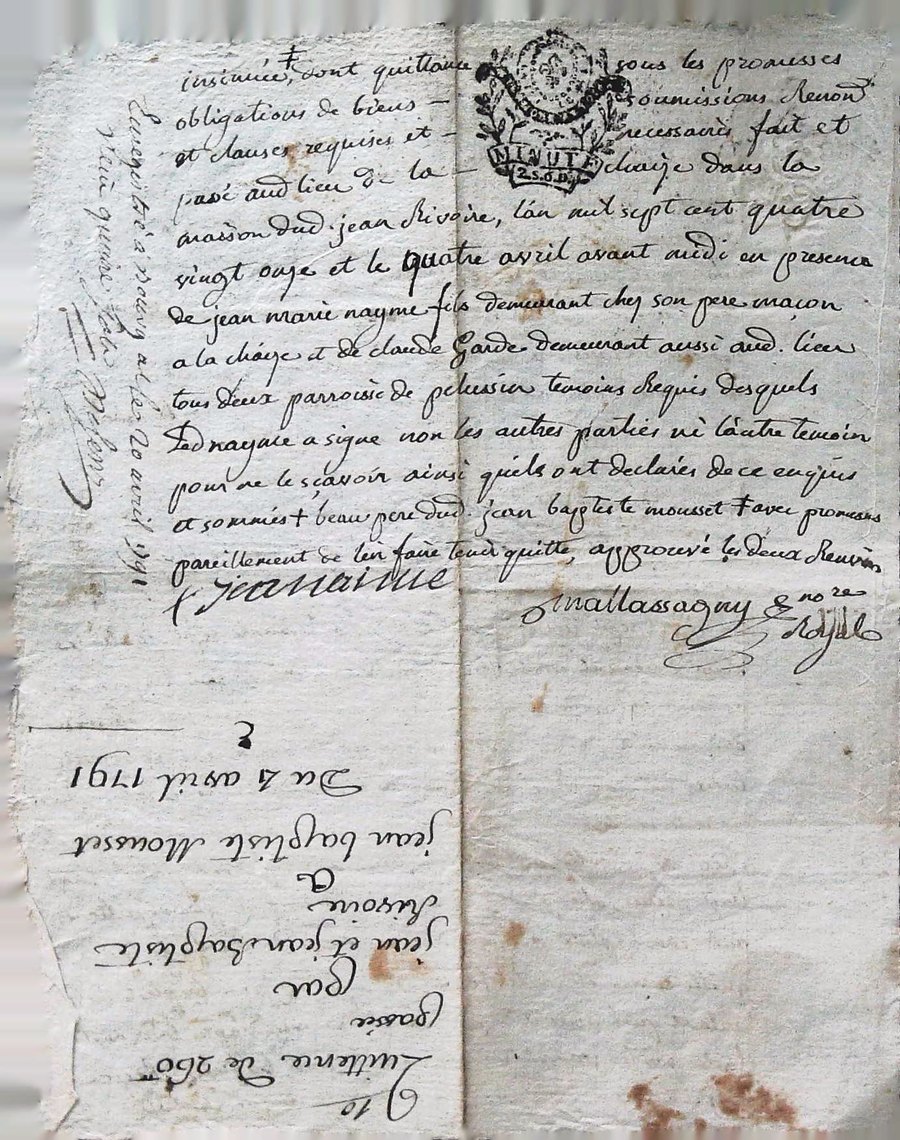 insinuée, ‡ dont quittance sous les promesses
obligations de biens — soumissions Renon
et clauses requises et — necessaires fait et
passé aud lieu de la — chaize dans la
maison dud. jean Rivoire, l'an mil sept cent quatre
vingt onze et le quatre avril avant midi en presence
de jean marie nayme fils demeurant chez son pere maçon
a la chaize et de claude Garde demeurant aussi aud. lieu
tous deux parroisse de pelussin temoins Requis desquels
Led nayme a signé non les autres parties ni l'autre temoin
pour ne le sçavoir ainsi quils ont declarés de ce enquis
et sommés ‡ beau pere dud. jean baptiste mousset ‡ avec promesses
pareillement de l'en faire tenir quitte, approuvé les deux Renvois
jea naime
Mallassagny nore
Royal
MINUTE
2.S.6.D.
Enregistré à bourg le 20 avril 1791
Reçu quinze sols
Quittence de 260
passée
par
jean et jean Baptiste
Rivoire
a
jean baptiste Mousset
Du 4 avril 1791